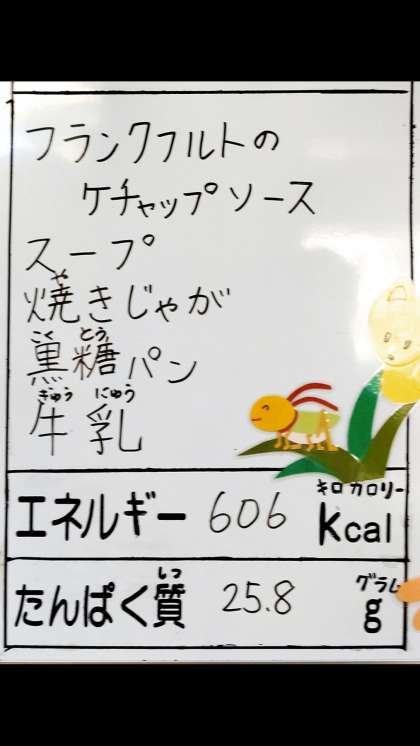 フランクフルトの
ケチャップソース
スープ
や
焼きじゃが
こく とう
黒糖パン
ぎゅう にゅう
牛乳
キロカロリー
エネルギー 606 Kcal
しつ グラム
たんぱく質 25.8 g